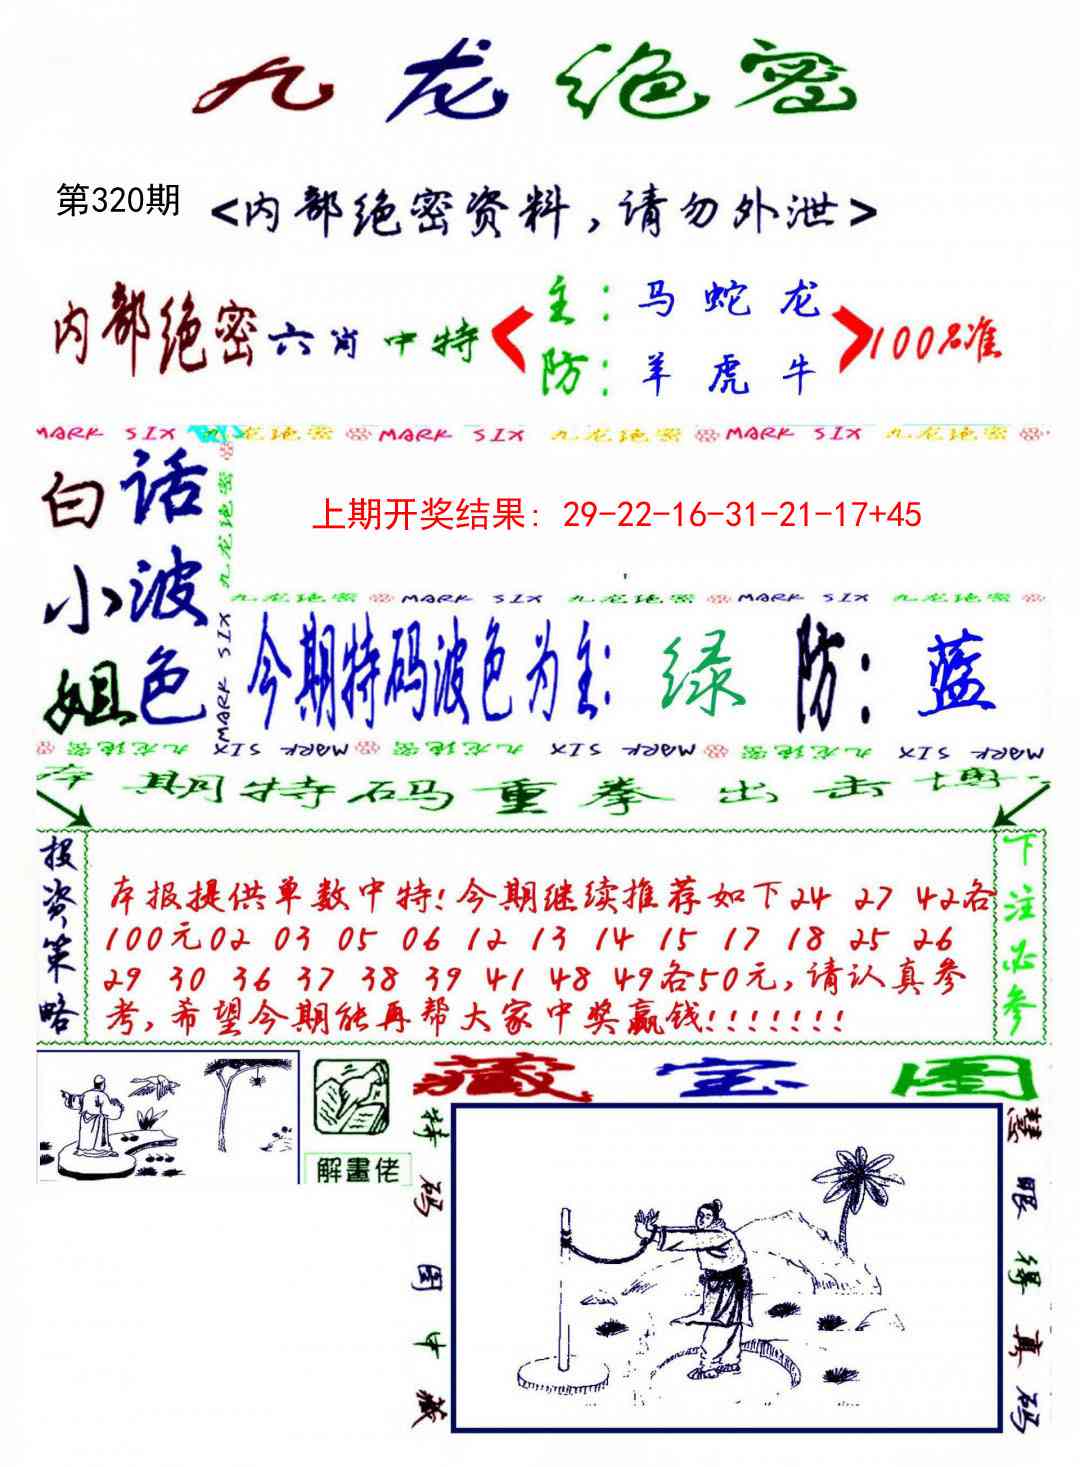 九龙绝密
第320期
<内部绝密资料，请勿外泄>
内部绝密六肖中特
主：马 蛇 龙
防：羊 虎 牛
100%准
MARK SIX 九龙绝密 MARK SIX 九龙绝密 MARK SIX 九龙绝密
白小姐
话波色
九龙绝密
MARK SIX
上期开奖结果: 29-22-16-31-21-17+45
九龙绝密 MARK SIX 九龙绝密 MARK SIX 九龙绝密
今期特码波色为主: 绿 防: 蓝
九龙绝密 MARK SIX 九龙绝密 MARK SIX 九龙绝密 MARK SIX
本期特码重拳出击博
投资策略
本报提供单数中特!今期继续推荐如下24 27 42各
100元02 03 05 06 12 13 14 15 17 18 25 26
29 30 36 37 38 39 41 48 49各50元,请认真参
考,希望今期能再帮大家中奖赢钱!!!!!!!
下注必参
解畫佬
藏宝图
特码图中藏
慧眼得真码